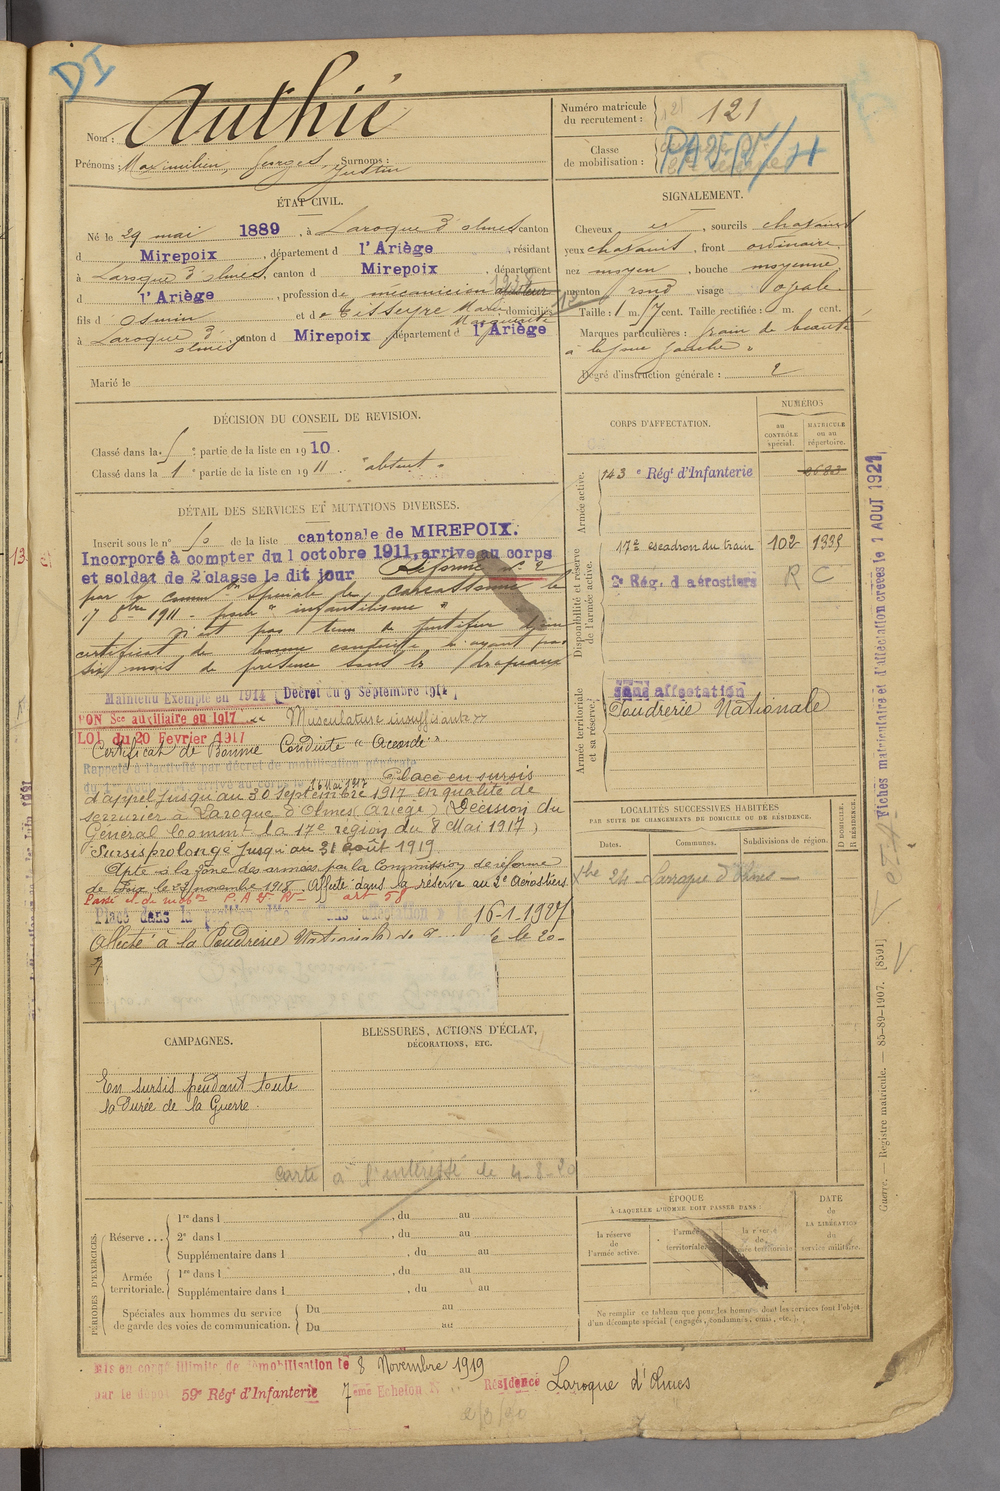 DI
Nom : Authié
Prénoms : Maximilien, Georges, Justin Surnoms :
Numéro matricule du recrutement : 121 121
Classe de mobilisation :
ÉTAT CIVIL.
Né le 29 mai 1889, à Laroque d'olmes canton
d Mirepoix, département d l'Ariège, résidant
à Laroque d'olmes, canton d Mirepoix, département
d l'Ariège, profession de mécanicien
fils d Osmin et de Tisseyre Marie Marguerite domiciliés
à Laroque d'olmes canton d Mirepoix, département d l'Ariège
Marié le
SIGNALEMENT.
Cheveux et, sourcils chatains
yeux chatains, front ordinaire,
nez moyen, bouche moyenne
menton rond visage ovale.
Taille : 1 m. 57 cent. Taille rectifiée : m. cent.
Marques particulières : grain de beauté
à la joue gauche
Degré d'instruction générale : 2
DÉCISION DU CONSEIL DE REVISION.
Classé dans la 5e partie de la liste en 1910.
Classé dans la 1e partie de la liste en 1911. "absent"
CORPS D'AFFECTATION.
NUMÉROS
au CONTRÔLE spécial.
MATRICULE ou au répertoire.
Armée active.
143e Régt d'Infanterie 2683
Disponibilité et réserve de l'armée active.
17e escadron du train 102 1335
2e Rég. d'aérostiers R C
Armée territoriale et sa réserve.
sans affectation
Poudrerie Nationale
DÉTAIL DES SERVICES ET MUTATIONS DIVERSES.
Inscrit sous le n° 10 de la liste cantonale de MIREPOIX.
Incorporé à compter du 1 octobre 1911, arrivé au corps
et soldat de 2e classe le dit jour Réformé n° 2
par la comm on spéciale de Carcassonne le
17 8bre 1911 pour "infantilisme"
N'est pas tenu de justifier d'un
certificat de bonne conduite n'ayant pas
six mois de présence sous les drapeaux
Maintenu Exempté en 1914 (Décret du 9 Septembre 1914)
BON Sce auxiliaire en 1917 "Musculature insuffisante"
LOI du 20 Février 1917
Certificat de Bonne Conduite "Accordé"
Rappelé à l'activité par décret de mobilisation générale
du 1er Août 1914 arrivé au corps le 16 Mai 1917 Placé en sursis
d'appel jusqu'au 30 Septembre 1917 en qualité de
serrurier à Laroque d'Olmes (Ariège) (Décision du
Général Commt la 17e région du 8 Mai 1917)
Sursis prolongé jusqu'au 31 août 1919.
Apte à la zone des armées par la Commission de réforme
de Foix le novembre 1918. Affecté dans la réserve au 2e Aérostiers.
Passé cl. de mob on P.A.E.R. art 58
Placé dans la position dite "Sans affectation" 16-1-1927
Affecté à la Poudrerie Nationale de le 20-
LOCALITÉS SUCCESSIVES HABITÉES
PAR SUITE DE CHANGEMENTS DE DOMICILE OU DE RÉSIDENCE.
Dates. Communes. Subdivisions de région. D DOMICILE. R RÉSIDENCE.
Xbre 24 Laroque d'Olmes
Fiches matriculaire et d'affectation créées le 1 AOUT 1921
Guerre. — Registre matricule. — 85-89-1907. [8591]
CAMPAGNES.
En sursis pendant toute
la Durée de la Guerre.
BLESSURES, ACTIONS D'ÉCLAT,
DÉCORATIONS, ETC.
Carte à l'intéressé le 4-8-20
PÉRIODES D'EXERCICES.
Réserve . . . 1re dans l , du au
2e dans l , du au
Supplémentaire dans l , du au
Armée territoriale. 1re dans l , du au
Supplémentaire dans l , du au
Spéciales aux hommes du service de garde des voies de communication. Du au
Du au
ÉPOQUE
À LAQUELLE L'HOMME DOIT PASSER DANS :
la réserve de l'armée active.
l'armée territoriale.
la réserve de l'armée territoriale
DATE de LA LIBÉRATION du service militaire.
Ne remplir ce tableau que pour les hommes dont les services font l'objet
d'un décompte spécial (engagés, condamnés, omis, etc.).
Mis en congé illimité de démobilisation le 8 Novembre 1919
par le dépôt 59e Régt d'Infanterie 7ème Echelon Résidence Laroque d'Olmes
2/8/20